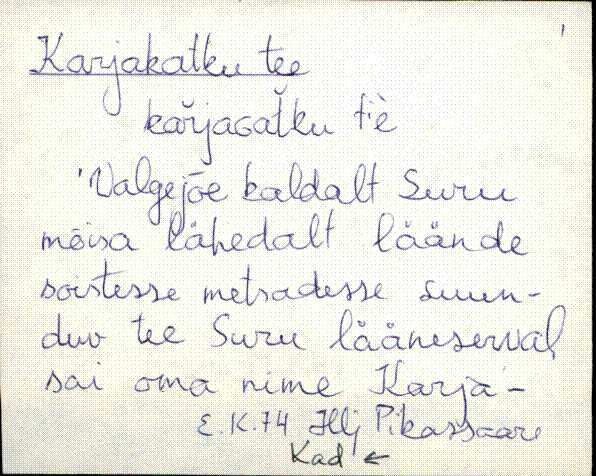 Karjakatku tee
kař̆jaGat̆ku tiè
'Valgejõe kaldalt Suru
mõisa lähedalt läände
soistesse metsadesse suun-
duv tee Suru lääneserval,
sai oma nime Karja-
E.K.74 Hlj Pikassaare
Kad ←